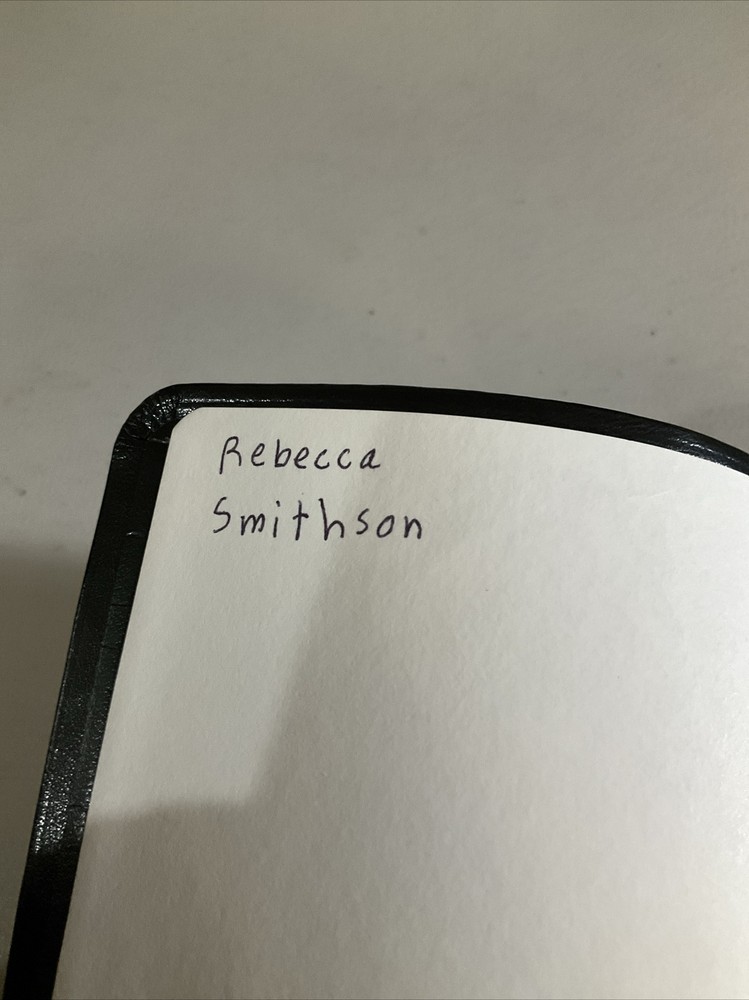 Rebecca
Smithson